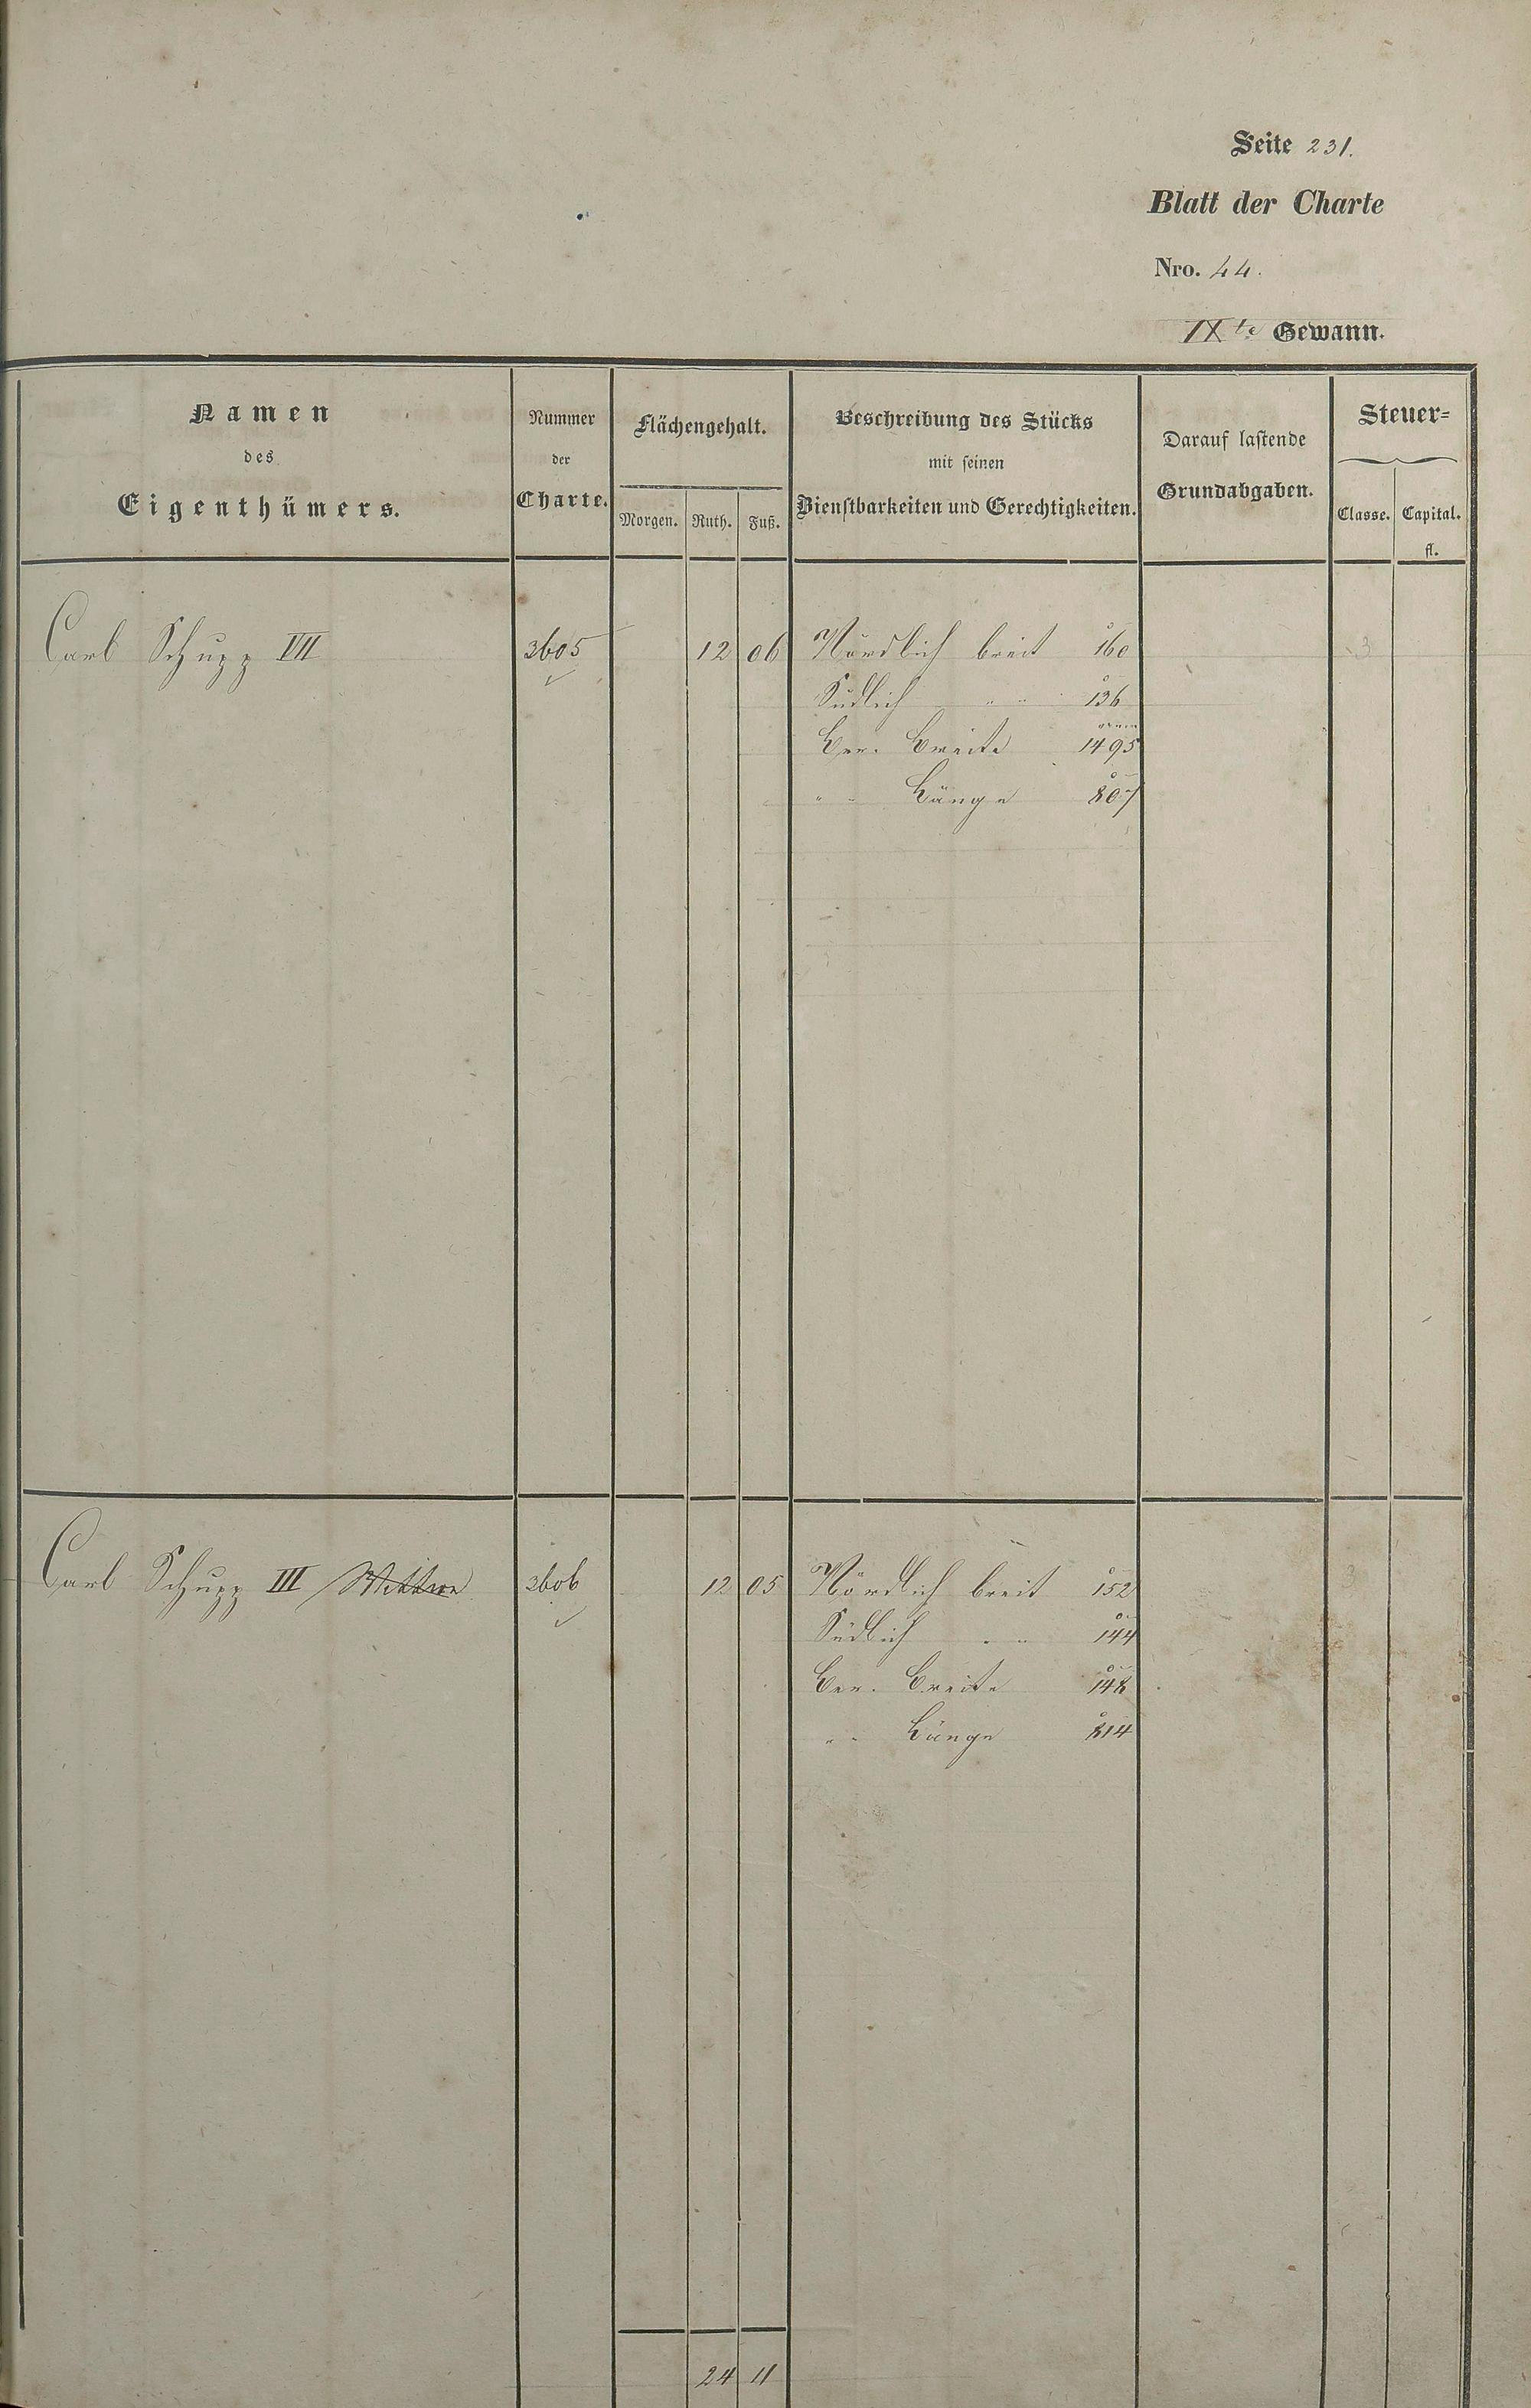 Seite 231.
Blatt der Charte
Nro. 44.
IXte Gewann.
Namen
des
Eigenthümers.
Nummer
der
Charte.
Flächengehalt.
Morgen. Ruth. Fuß.
Beschreibung des Stücks
mit seinen
Dienstbarkeiten und Gerechtigkeiten.
Darauf lastende
Grundabgaben.
Steuer=
Classe. Capital.
fl.
Carl Schupp VII 3605 12 06 Nördlich breit 160 3
Südlich " " 136
Ber. Breite 1495
" " Länge 807
Carl Schupp III Wittwe 3606 12 05 Nördlich breit 152 3
Südlich " " 144
Ber. Breite 148
" " Länge 814
24 11